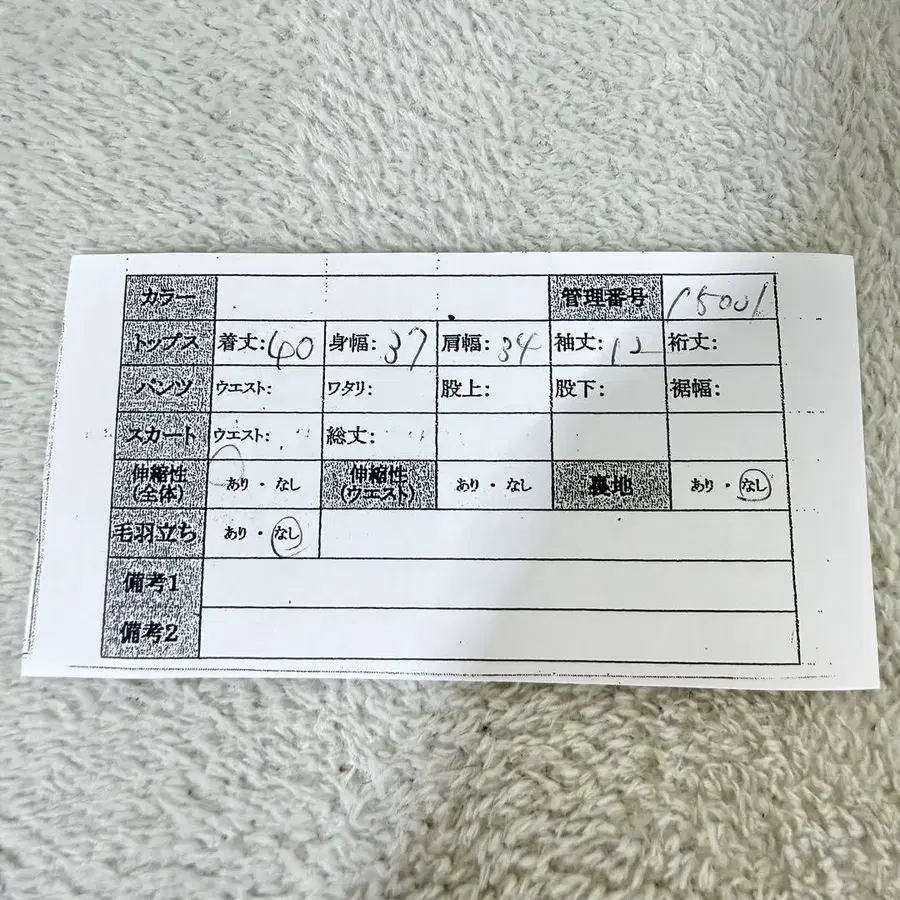 カラー 管理番号 15001
トップス 着丈:40 身幅:37 肩幅:34 袖丈:12 裄丈:
パンツ ウエスト: ワタリ: 股上: 股下: 裾幅:
スカート ウエスト: 総丈:
伸縮性(全体) あり・なし 伸縮性(ウエスト) あり・なし 裏地 あり・なし
毛羽立ち あり・なし
備考1
備考2